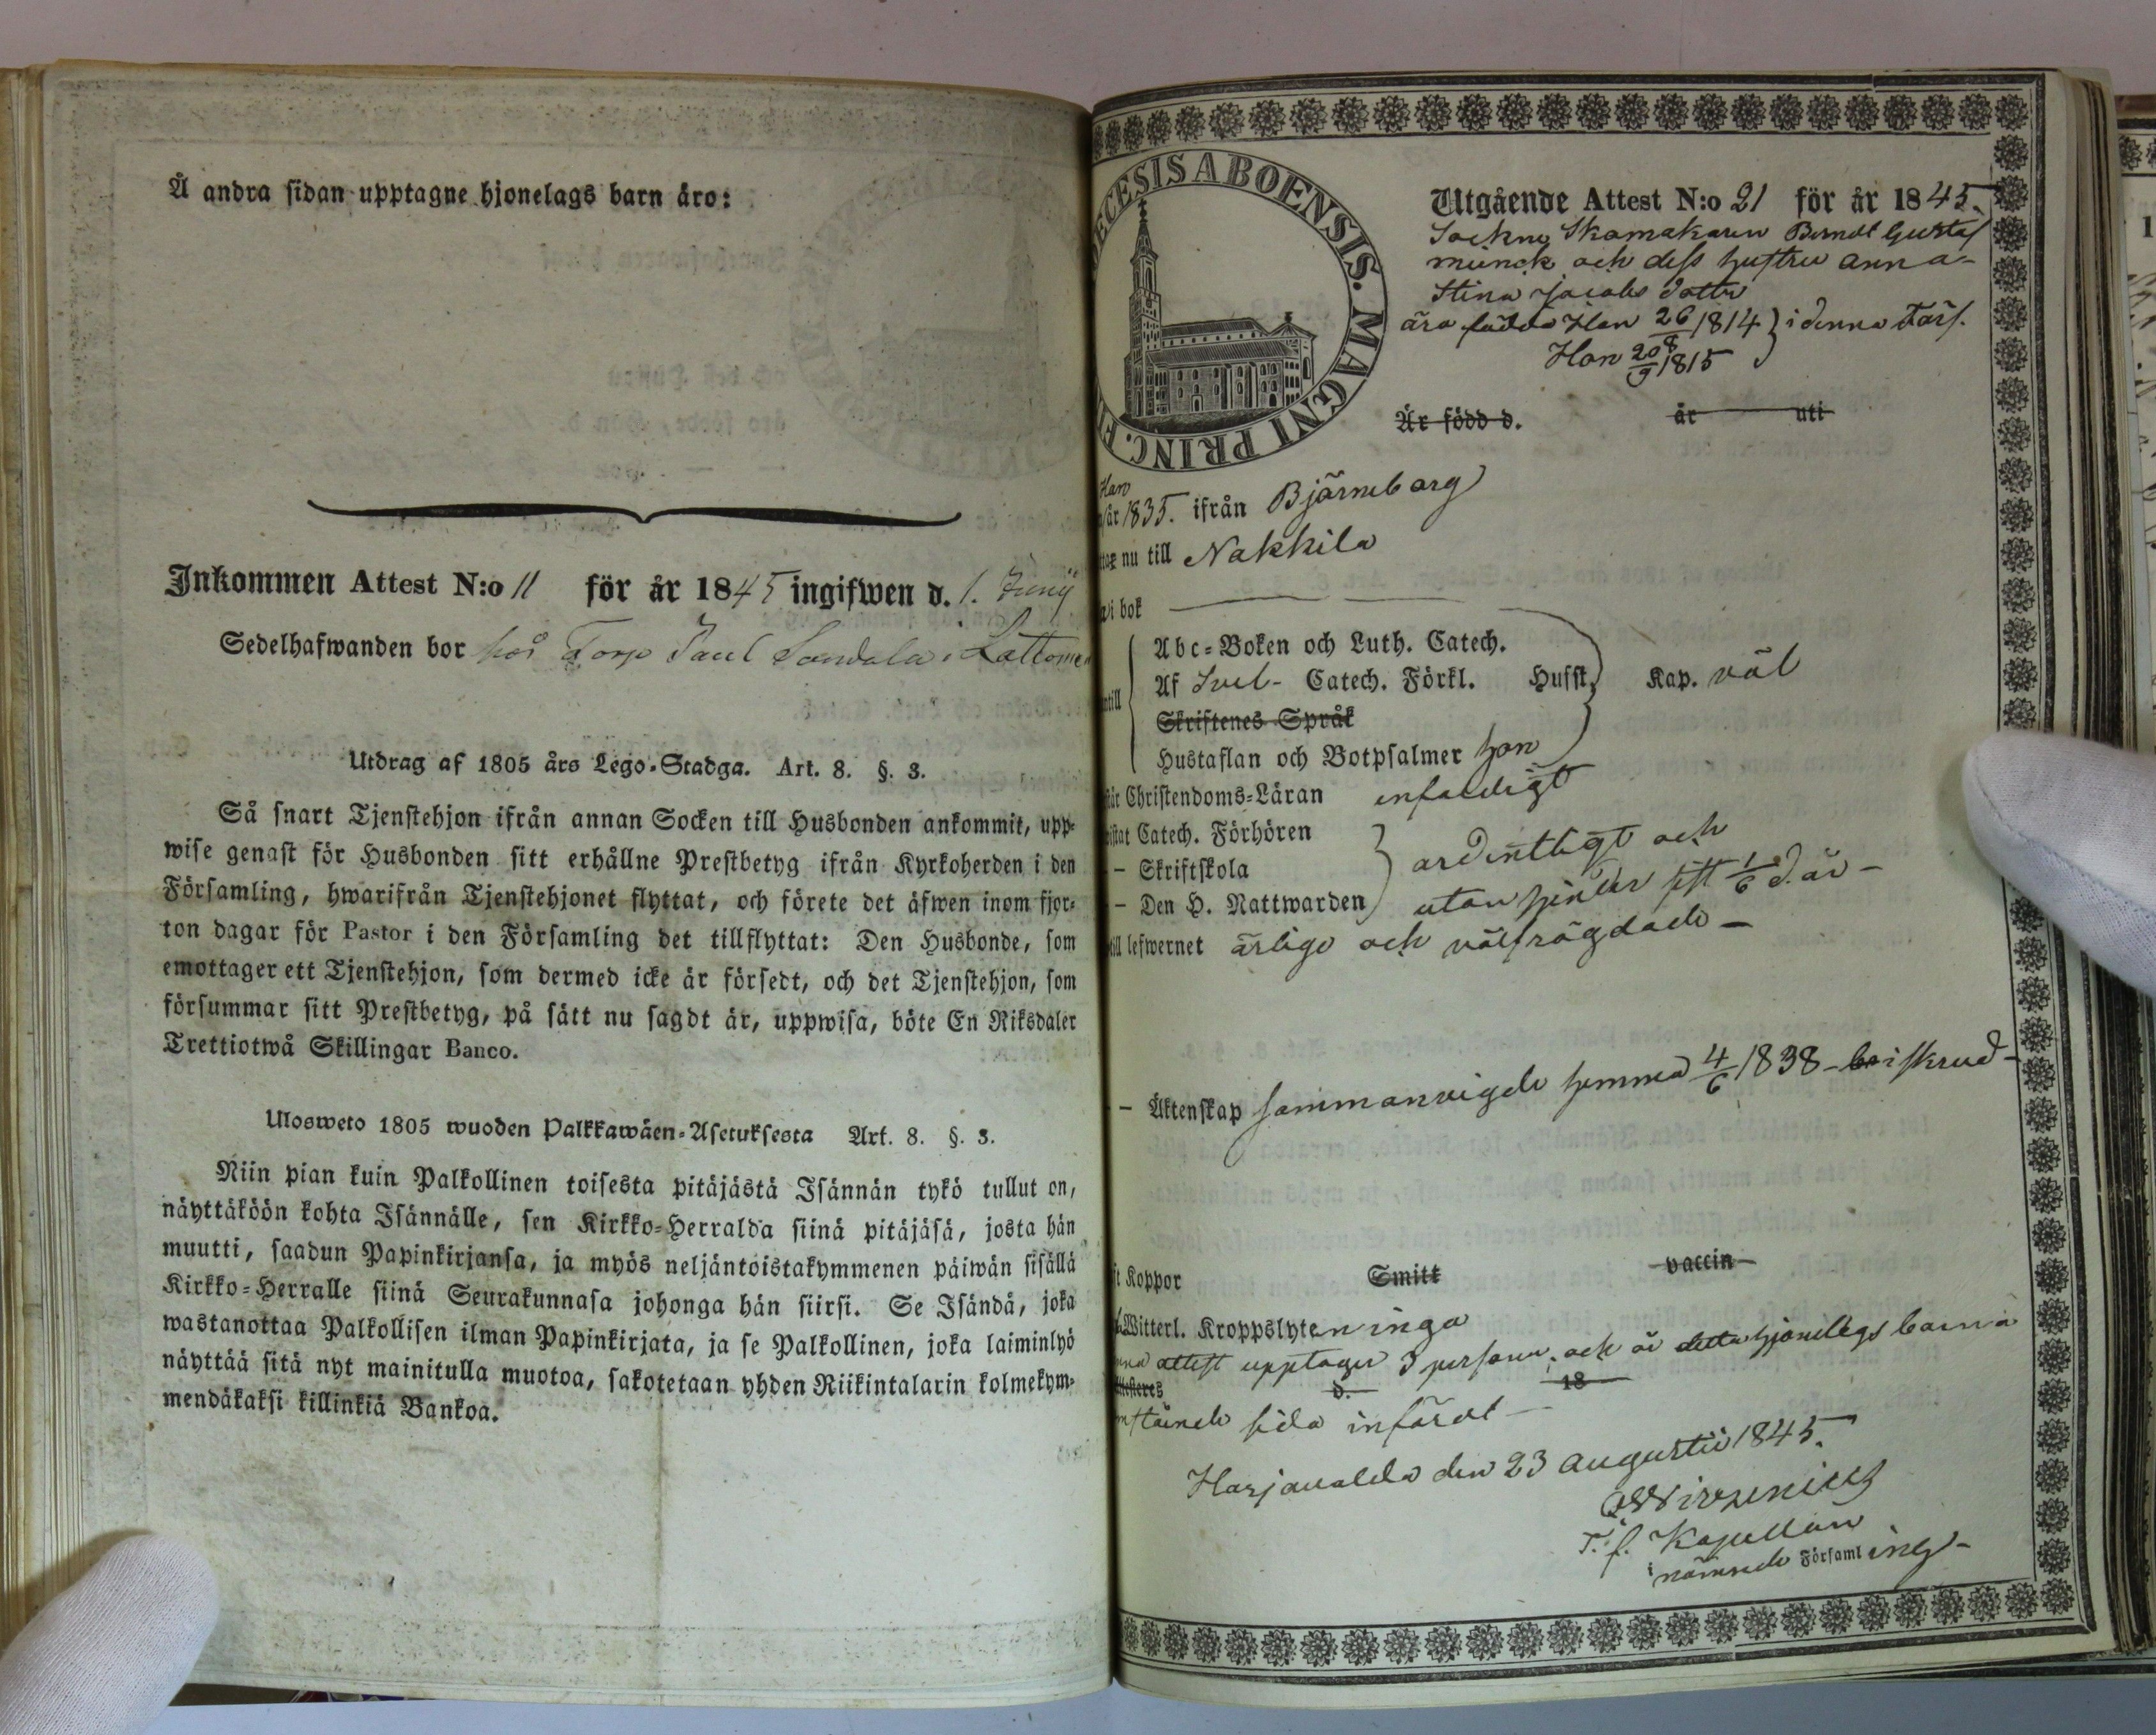 Å andra sidan upptagne hjonelags barn äro:
Inkommen Attest N:o 11 för år 1845 ingifwen d. 1. Junij
Sedelhafwanden bor hos Torp Paul Sondala i Lattomeri
Utdrag af 1805 års Lego-Stadga. Art. 8. §. 3.
Så snart Tjenstehjon ifrån annan Socken till Husbonden ankommit, upp-
wise genast för Husbonden sitt erhållne Prestbetyg ifrån Kyrkoherden i den
Församling, hwarifrån Tjenstehjonet flyttat, och förete det äfwen inom fjor-
ton dagar för Pastor i den Församling det tillflyttat: Den Husbonde, som
emottager ett Tjenstehjon, som dermed icke är försedt, och det Tjenstehjon, som
försummar sitt Prestbetyg, på sätt nu sagdt är, uppwisa, böte En Riksdaler
Trettiotwå Skillingar Banco.
Ulosweto 1805 wuoden Palkkawäen-Asetuksesta Art. 8. §. 3.
Niin pian kuin Palkollinen toisesta pitäjästä Isännän tykö tullut on,
näyttäköön kohta Isännälle, sen Kirkko-Herralda siinä pitäjäsä, josta hän
muutti, saadun Papinkirjansa, ja myös neljäntoistakymmenen päiwän sisällä
Kirkko-Herralle siinä Seurakunnasa johonga hän siirsi. Se Isändä, joka
wastanottaa Palkollisen ilman Papinkirjata, ja se Palkollinen, joka laiminlyö
näyttää sitä nyt mainitulla muotoa, sakotetaan yhden Riikintalarin kolmekym-
mendäkaksi killinkiä Bankoa.
ECESIS ABOENSIS. MAGNI PRINC. FI
Utgående Attest N:o 21 för år 1845.
Sockne Skomakaren Berndt Gustaf
Munck och dess hustru Anna
Stina Jacobs dotter
äro födde Han 26/8 1814 } i denna Förs.
Hon 20/9 1815
Är född d. år uti
Han
år 1835. ifrån Björneborg
nu till Nakkila
i bok
Abc-Boken och Luth. Catech.
Af Svel- Catech. Förkl. Husst. Kap. väl
Skriftenes Språk
Hustaflan och Botpsalmer hon
Christendoms-Läran enfaldigt
Catech. Förhören
– Skriftskola ordentligt och
– Den H. Nattwarden utan hinder sist 1/6 d. är
till lefwernet ärlige och välfrägdade
– Äktenskap sammanvigde hemma 4/6 1838 – i skrud
Koppor Smitt vaccin
Witterl. Kroppslyten inga
attest upptager 3 personer, och är detta hjonelags barn å
d. 18
sida infördt
Harjavalla den 23 Augustii 1845.
T. f. Kapellan
i nämnde Församling